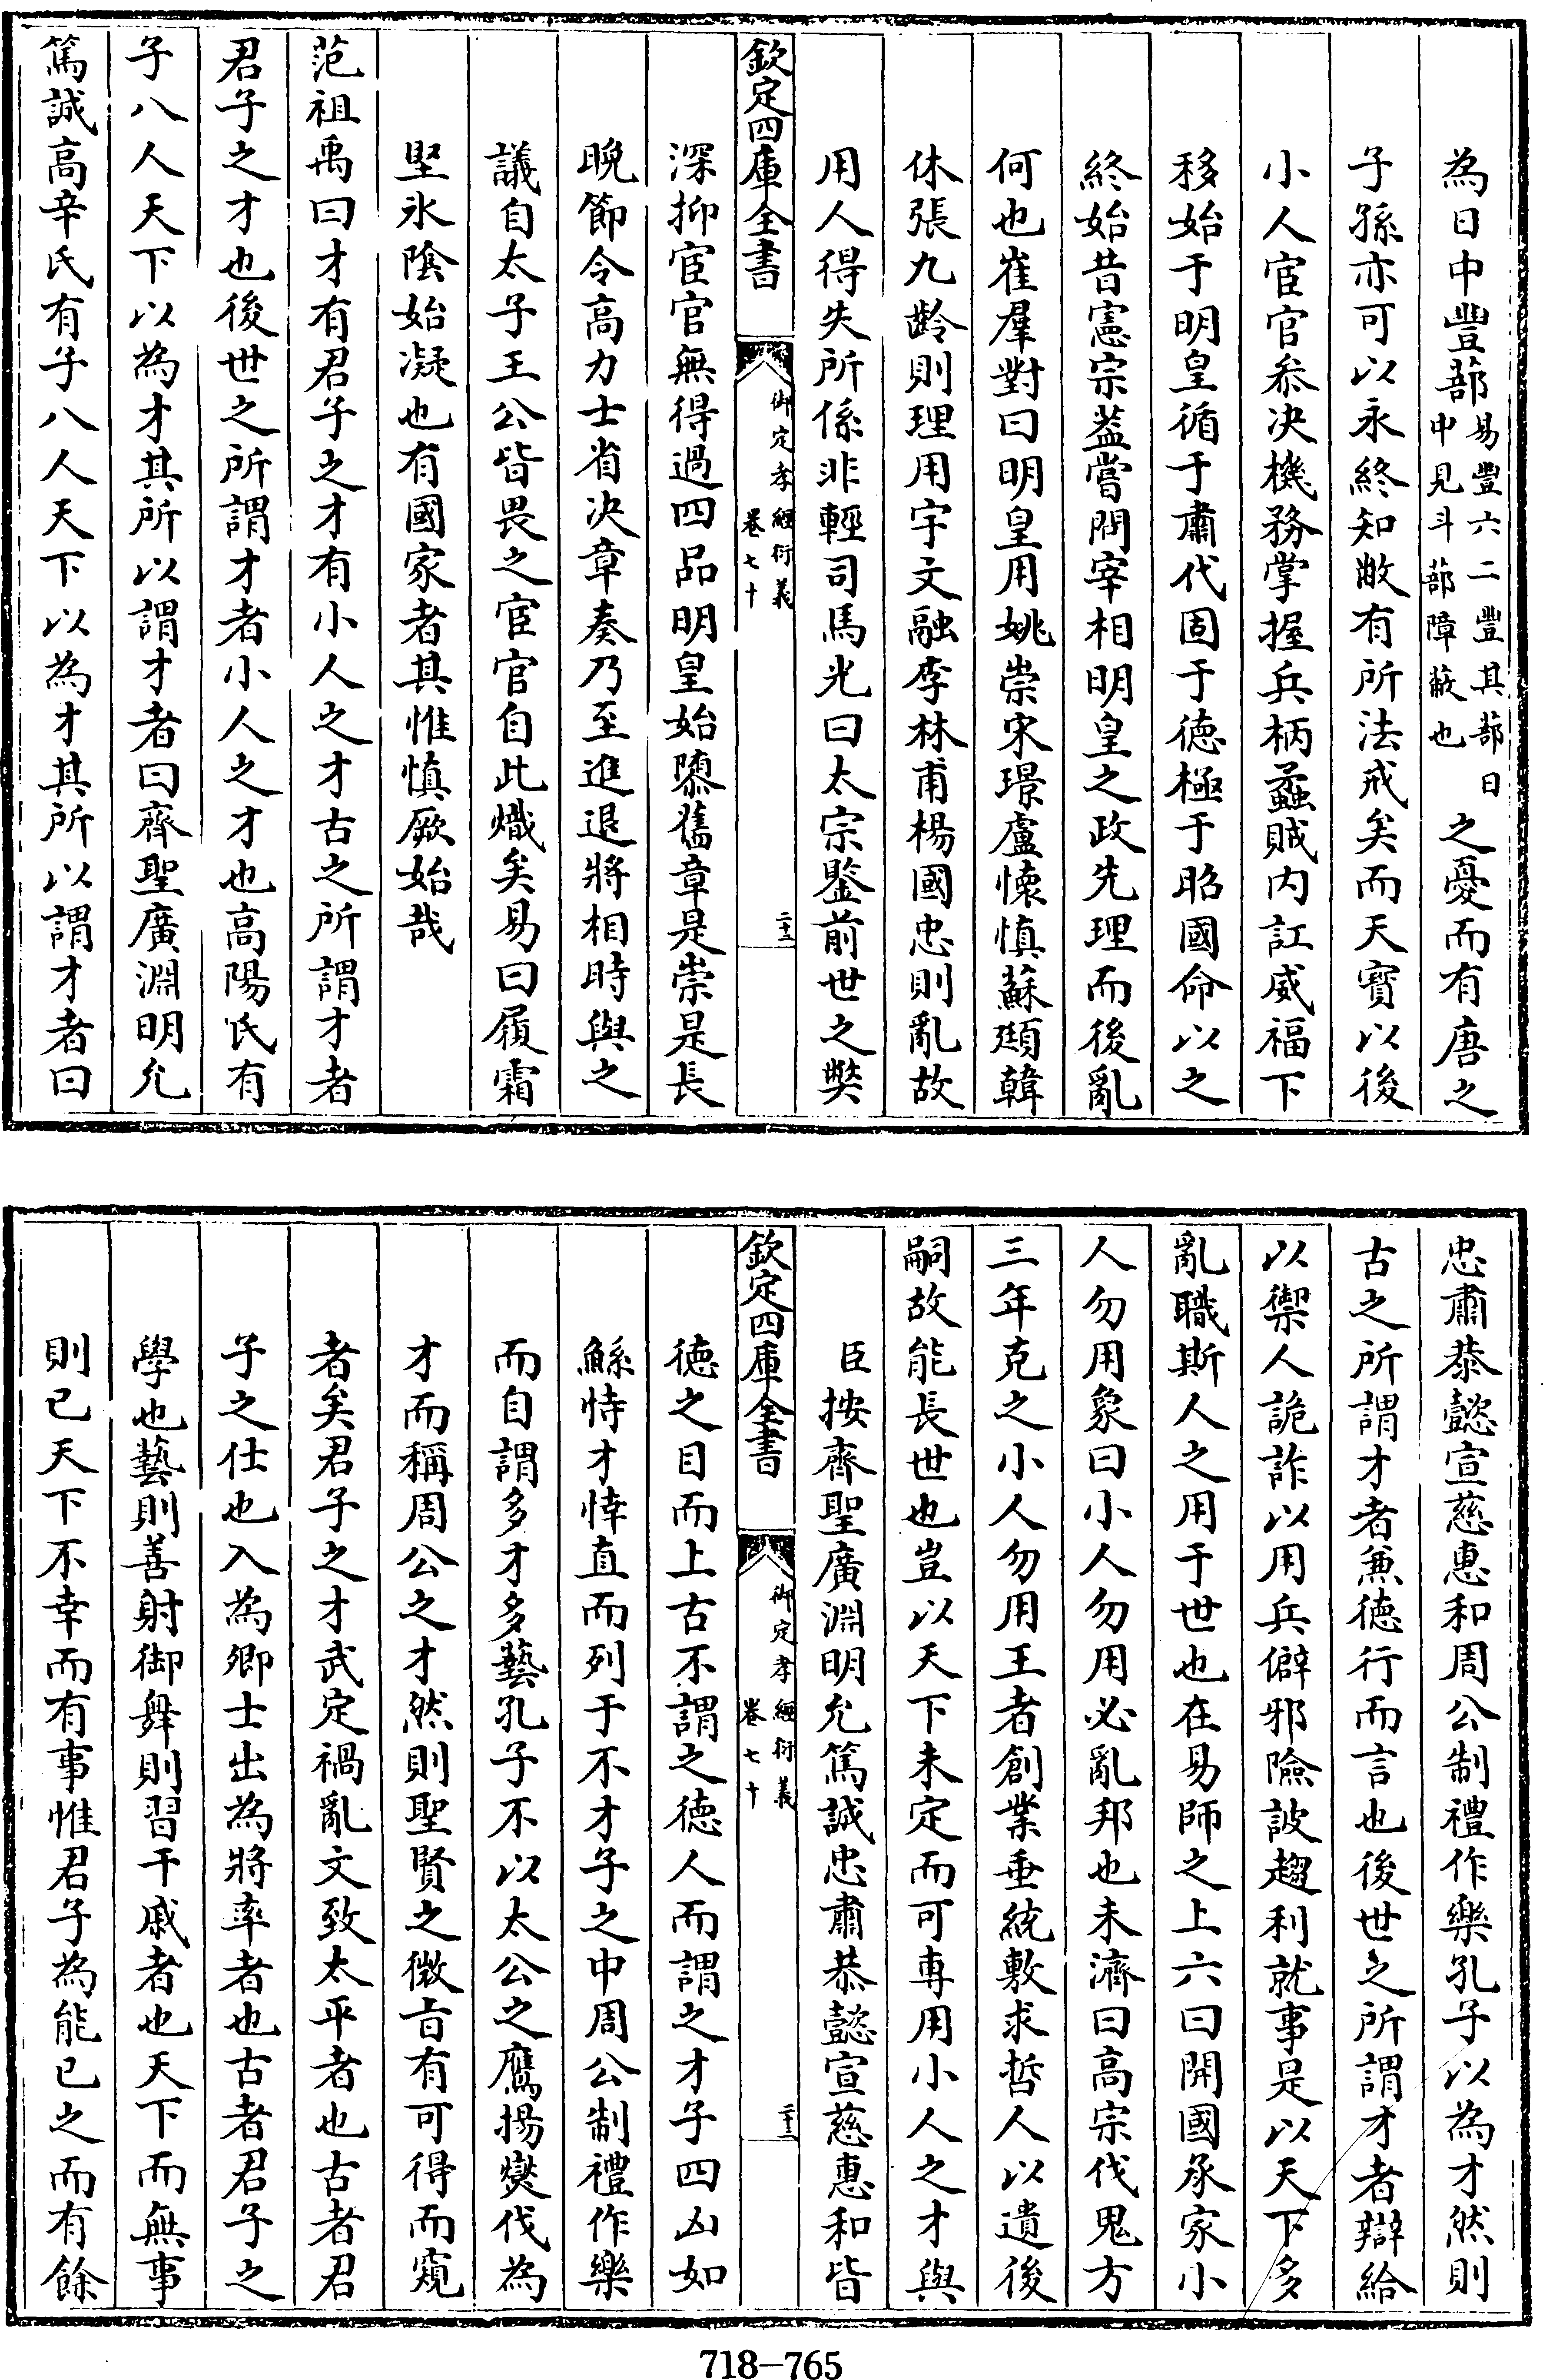 為日中豐蔀易豐六二豐其蔀日中見斗蔀障蔽也之憂而有唐之
子孫亦可以永終知敝有所法戒矣而天寶以後
小人宦官叅决機務掌握兵柄蟊賊内訌威福下
移始于明皇循于肅代固于德極于昭國命以之
終始昔憲宗葢嘗問宰相明皇之政先理而後亂
何也崔羣對曰明皇用姚崇宋璟盧懷慎蘇頲韓
休張九齡則理用宇文融李林甫楊國忠則亂故
用人得失所係非輕司馬光曰太宗鑒前世之獘
欽定四庫全書 御定孝經衍義 卷七十 二十二
深抑宦官無得過四品明皇始隳舊章是崇是長
晩節令高力士省決章奏乃至進退將相時與之
議自太子王公皆畏之宦官自此熾矣易曰履霜
堅氷陰始凝也有國家者其惟慎厥始哉
范祖禹曰才有君子之才有小人之才古之所謂才者
君子之才也後世之所謂才者小人之才也高陽氏有
子八人天下以為才其所以謂才者曰齊聖廣淵明允
篤誠高辛氏有子八人天下以為才其所以謂才者曰
忠肅恭懿宣慈惠和周公制禮作樂孔子以為才然則
古之所謂才者兼德行而言也後世之所謂才者辯給
以禦人詭詐以用兵僻邪險詖趨利就事是以天下多
亂職斯人之用于世也在易師之上六曰開國承家小
人勿用象曰小人勿用必亂邦也未濟曰高宗伐鬼方
三年克之小人勿用王者創業垂統敷求哲人以遺後
嗣故能長世也豈以天下未定而可專用小人之才與
臣按齊聖廣淵明允篤誠忠肅恭懿宣慈惠和皆
欽定四庫全書 御定孝經衍義 卷七十 二十三
德之目而上古不謂之德人而謂之才子四凶如
鯀恃才悻直而列于不才子之中周公制禮作樂
而自謂多才多藝孔子不以太公之鷹揚燮伐為
才而稱周公之才然則聖賢之微旨有可得而窺
者矣君子之才武定禍亂文致太平者也古者君
子之仕也入為卿士出為將率者也古者君子之
學也藝則善射御舞則習干戚者也天下而無事
則已天下不幸而有事惟君子為能已之而有餘
718-765